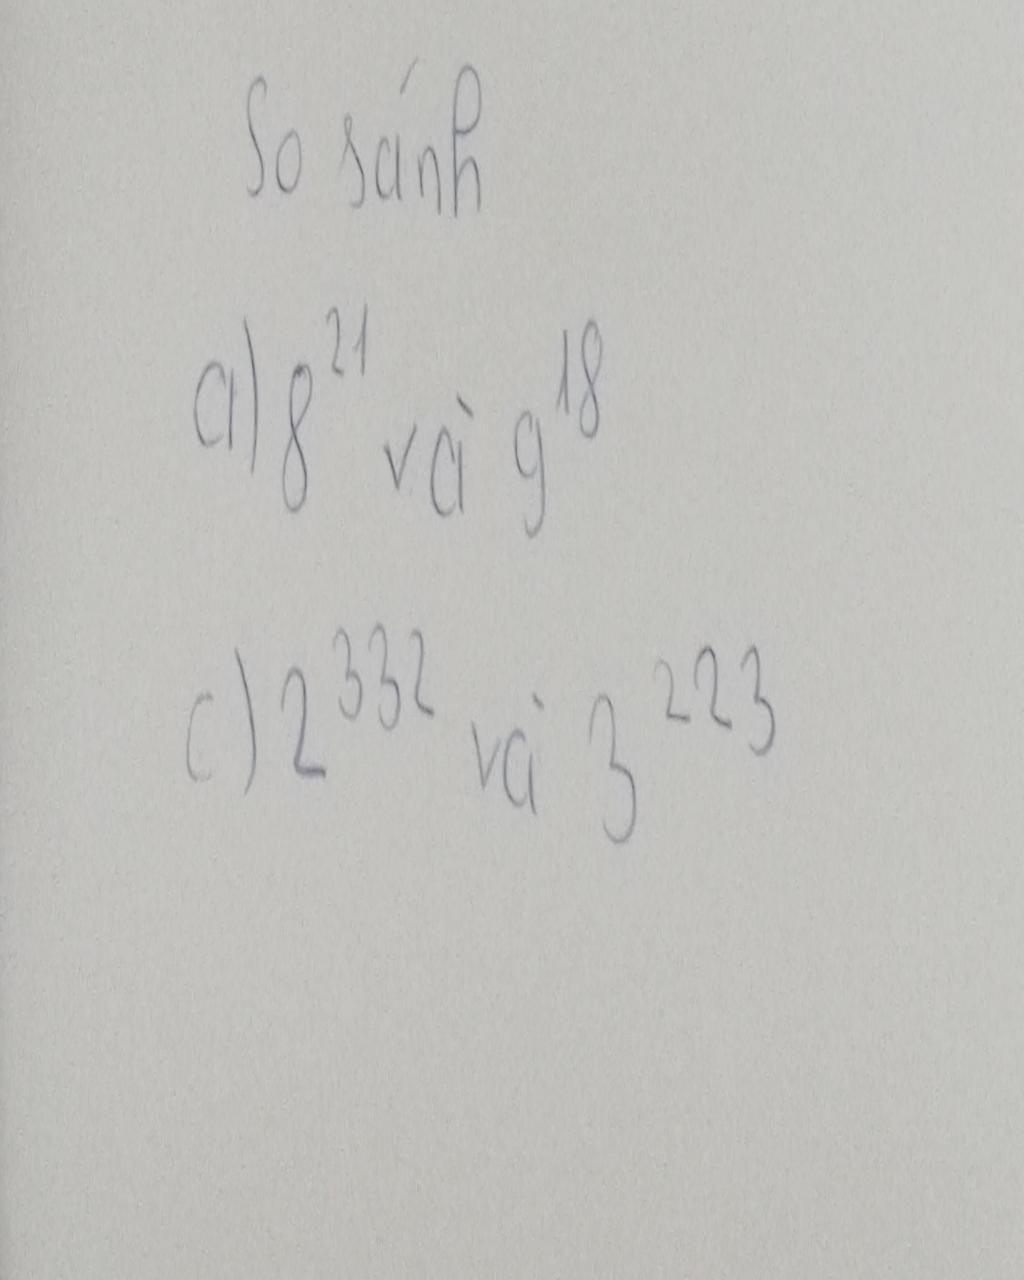 So sánh
a) 8²¹ và 9¹⁸
c) 2³³² và 3²²³